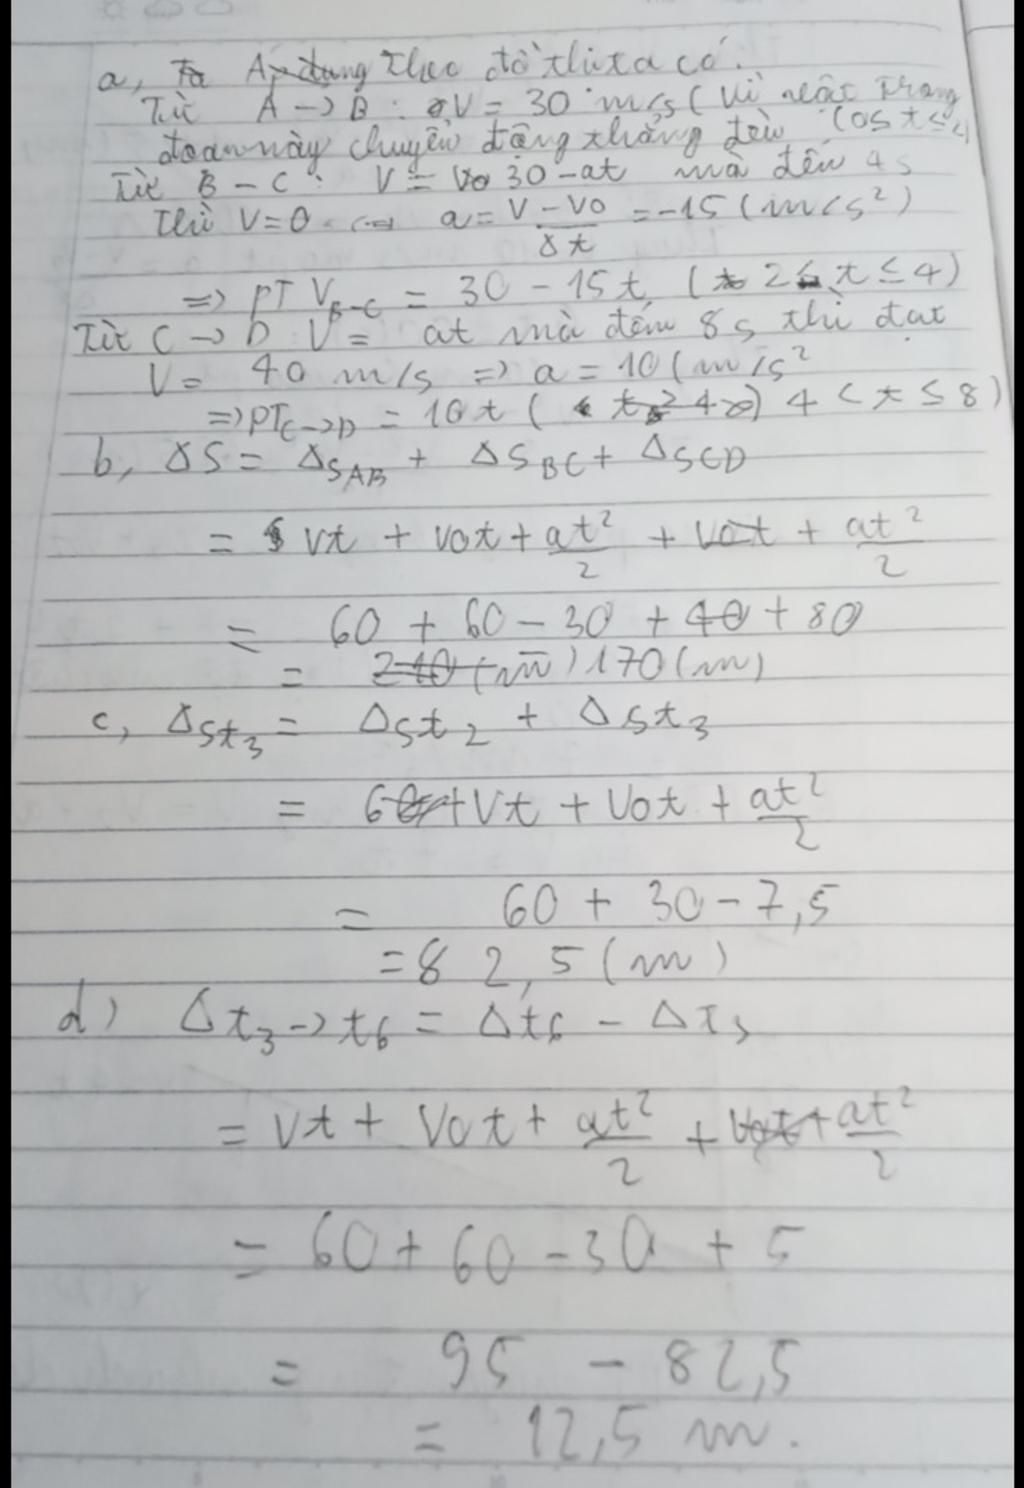 a, Ta Áp dụng theo đồ thị ta có:
Từ A → B : V = 30 m/s (Vì vật trong
đoạn này chuyển động thẳng đều (0≤ t ≤ 2)
Từ B - C : V = V0 30 - at mà đến 4s
thì V = 0 ↔ a = V - V0 / Δt = -15 (m/s²)
=> PT V B-C = 30 - 15t, (2 ≤ t ≤ 4)
Từ C → D V = at mà đến 8s thì đạt
V = 40 m/s => a = 10 (m/s²
=> PT C→D = 10t ( 4 < t ≤ 8 )
b, ΔS = ΔS AB + ΔS BC + ΔS CD
= Vt + V0t + at²/2 + V0t + at²/2
= 60 + 60 - 30 + 40 + 80
= 210 (m) 170 (m)
c, ΔSt3 = ΔSt2 + ΔSt3
= 60 + Vt + V0t + at²/2
= 60 + 30 - 7,5
= 82,5 (m)
d) Δt3 → t6 = Δt6 - Δt3
= Vt + V0t + at²/2 + V0t + at²/2
= 60 + 60 - 30 + 5
= 95 - 82,5
= 12,5 m.